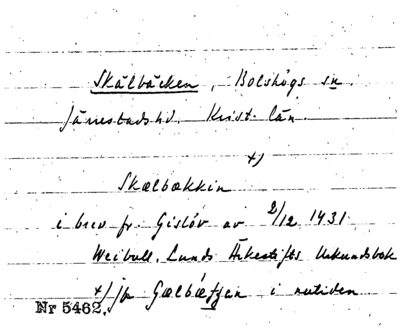 Skälbäcken, Bolshögs sn.
Järrestads hd. Krist. län.
+)
Skælbækkin
i brev fr. Gislöv av 2/12 1431
Weibull, Lunds Ärkestifts Urkundsbok
+) jfr Gælbæ i nutiden
Nr 5462.